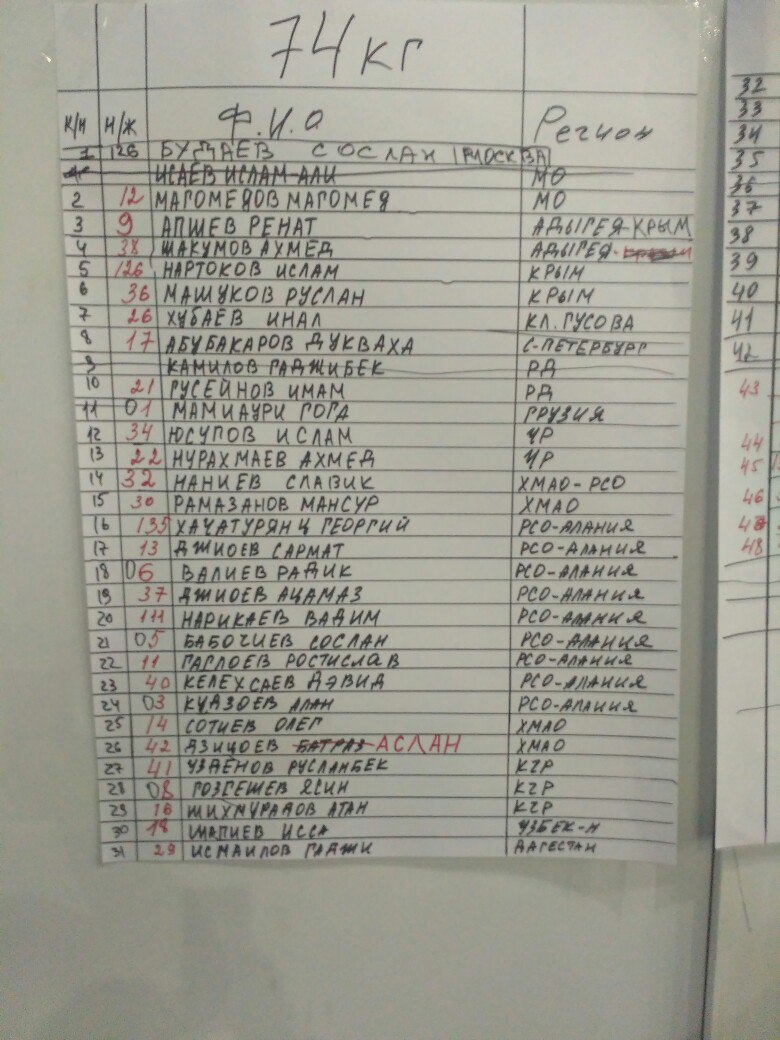 74 кг
К/Н Н/Ж Ф.И.О Регион
1 126 БУДАЕВ СОСЛАН МОСКВА
ИСАЕВ ИСЛАМ-АЛИ МО
2 12 МАГОМЕДОВ МАГОМЕД МО
3 9 АПШЕВ РЕНАТ АДЫГЕЯ-КРЫМ
4 38 ШАКУМОВ АХМЕД АДЫГЕЯ-
5 126 НАРТОКОВ ИСЛАМ КРЫМ
6 36 МАШУКОВ РУСЛАН КРЫМ
7 26 ХУБАЕВ ИНАЛ КЛ.ГУСОВА
8 17 АБУБАКАРОВ ДУКВАХА С-ПЕТЕРБУРГ
9 КАМИЛОВ ГАДЖИБЕК РД
10 21 ГУСЕЙНОВ ИМАМ РД
11 01 МАМИАУРИ ГОГА ГРУЗИЯ
12 34 ЮСУПОВ ИСЛАМ ЧР
13 22 НУРАХМАЕВ АХМЕД ЧР
14 32 НАНИЕВ СЛАВИК ХМАО-РСО
15 30 РАМАЗАНОВ МАНСУР ХМАО
16 135 ХАЧАТУРЯНЦ ГЕОРГИЙ РСО-АЛАНИЯ
17 13 ДЖИОЕВ САРМАТ РСО-АЛАНИЯ
18 06 ВАЛИЕВ РАДИК РСО-АЛАНИЯ
19 37 ДЖИОЕВ АЦАМАЗ РСО-АЛАНИЯ
20 111 НАРИКАЕВ ВАДИМ РСО-АЛАНИЯ
21 05 БАБОЧИЕВ СОСЛАН РСО-АЛАНИЯ
22 11 ГАГЛОЕВ РОСТИСЛАВ РСО-АЛАНИЯ
23 40 КЕЛЕХСАЕВ ДЭВИД РСО-АЛАНИЯ
24 03 КУДЗОЕВ АЛАН РСО-АЛАНИЯ
25 14 СОТИЕВ ОЛЕГ ХМАО
26 42 ДЗИЦОЕВ БАТРАЗ АСЛАН ХМАО
27 41 УЗДЕНОВ РУСЛАНБЕК КЧР
28 08 ГОЗГЕШЕВ ЯСИН КЧР
29 16 ШИХМУРАДОВ АТАН КЧР
30 18 ШАПИЕВ ИССА УЗБЕК-Н
31 29 ИСМАИЛОВ ГАДЖИ ДАГЕСТАН
32
33
34
35
36
37
38
39
40
41
42
43
44
45
46
48